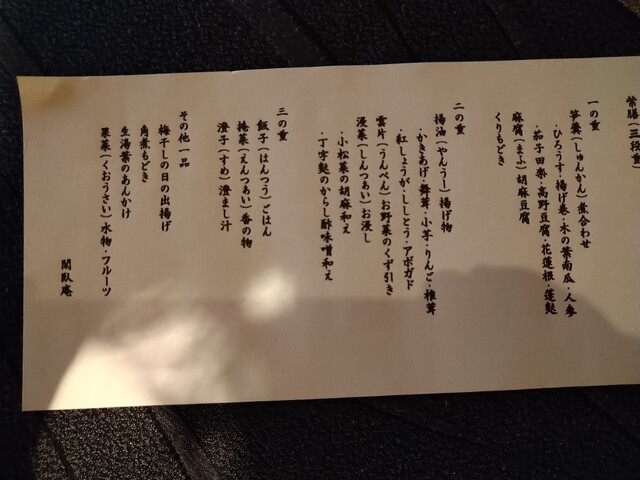 紫膳(三段重)
一の重
筝羹(しゅんかん)煮合わせ
・ひろうす・揚げ巻・木の葉南瓜・人参
・茄子田楽・高野豆腐・花蓮根・蓬麩
麻腐(まふ)胡麻豆腐
くりもどき
二の重
揚油(やんうー)揚げ物
・かきあげ・舞茸・小芋・りんご・椎茸
・紅しょうが・ししとう・アボガド
雲片(うんぺん)お野菜のくず引き
浸菜(しんつぁい)お浸し
・小松菜の胡麻和え
・丁字麩のからし酢味噌和え
三の重
飯子(はんつう)ごはん
揓菜(えんつぁい)香の物
澄子(すめ)澄まし汁
その他一品
梅干しの日の出揚げ
角煮もどき
生湯葉のあんかけ
果菜(くおうさい)水物・フルーツ
閑臥庵